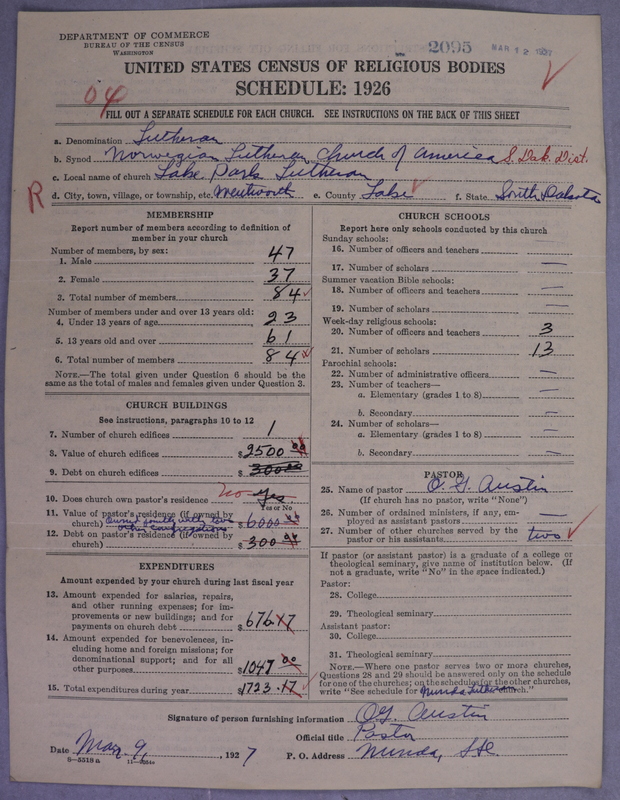 DEPARTMENT OF COMMERCE
BUREAU OF THE CENSUS
WASHINGTON
2095 MAR 12 1927
UNITED STATES CENSUS OF RELIGIOUS BODIES
SCHEDULE: 1926
04
FILL OUT A SEPARATE SCHEDULE FOR EACH CHURCH. SEE INSTRUCTIONS ON THE BACK OF THIS SHEET
a. Denomination Lutheran
b. Synod Norwegian Lutheran Church of America S. Dak. Dist.
c. Local name of church Lake Park Lutheran
R
d. City, town, village, or township, etc. Wentworth e. County Lake f. State South Dakota
MEMBERSHIP
Report number of members according to definition of
member in your church
Number of members, by sex:
1. Male 47
2. Female 37
3. Total number of members 84
Number of members under and over 13 years old:
4. Under 13 years of age 23
5. 13 years old and over 61
6. Total number of members 84
NOTE.—The total given under Question 6 should be the
same as the total of males and females given under Question 3.
CHURCH BUILDINGS
See instructions, paragraphs 10 to 12
7. Number of church edifices 1
8. Value of church edifices $2500 00
9. Debt on church edifices $300 00
10. Does church own pastor's residence? No Yes
Yes or No
11. Value of pastor's residence (if owned by
church) Owned jointly with two other congregations $6000
12. Debt on pastor's residence (if owned by
church) $300
EXPENDITURES
Amount expended by your church during last fiscal year
13. Amount expended for salaries, repairs,
and other running expenses; for im-
provements or new buildings; and for
payments on church debt $676.17
14. Amount expended for benevolences, in-
cluding home and foreign missions; for
denominational support; and for all
other purposes $1047 00
15. Total expenditures during year $1723.17
CHURCH SCHOOLS
Report here only schools conducted by this church
Sunday schools:
16. Number of officers and teachers —
17. Number of scholars —
Summer vacation Bible schools:
18. Number of officers and teachers —
19. Number of scholars —
Week-day religious schools:
20. Number of officers and teachers 3
21. Number of scholars 13
Parochial schools:
22. Number of administrative officers —
23. Number of teachers—
a. Elementary (grades 1 to 8) —
b. Secondary —
24. Number of scholars—
a. Elementary (grades 1 to 8) —
b. Secondary —
PASTOR
25. Name of pastor O. G. Austin
(If church has no pastor, write "None")
26. Number of ordained ministers, if any, em-
ployed as assistant pastors —
27. Number of other churches served by the
pastor or his assistants two
If pastor (or assistant pastor) is a graduate of a college or
theological seminary, give name of institution below. (If
not a graduate, write "No" in the space indicated.)
Pastor:
28. College
29. Theological seminary
Assistant pastor:
30. College
31. Theological seminary
NOTE.—Where one pastor serves two or more churches,
Questions 28 and 29 should be answered only on the schedule
for one of the churches; on the schedules for the other churches,
write "See schedule for Nunda Lutheran church."
Signature of person furnishing information O.G. Austin
Official title Pastor
Date Mar 9, 1927 P. O. Address Nunda, S.D.
8—5518 a